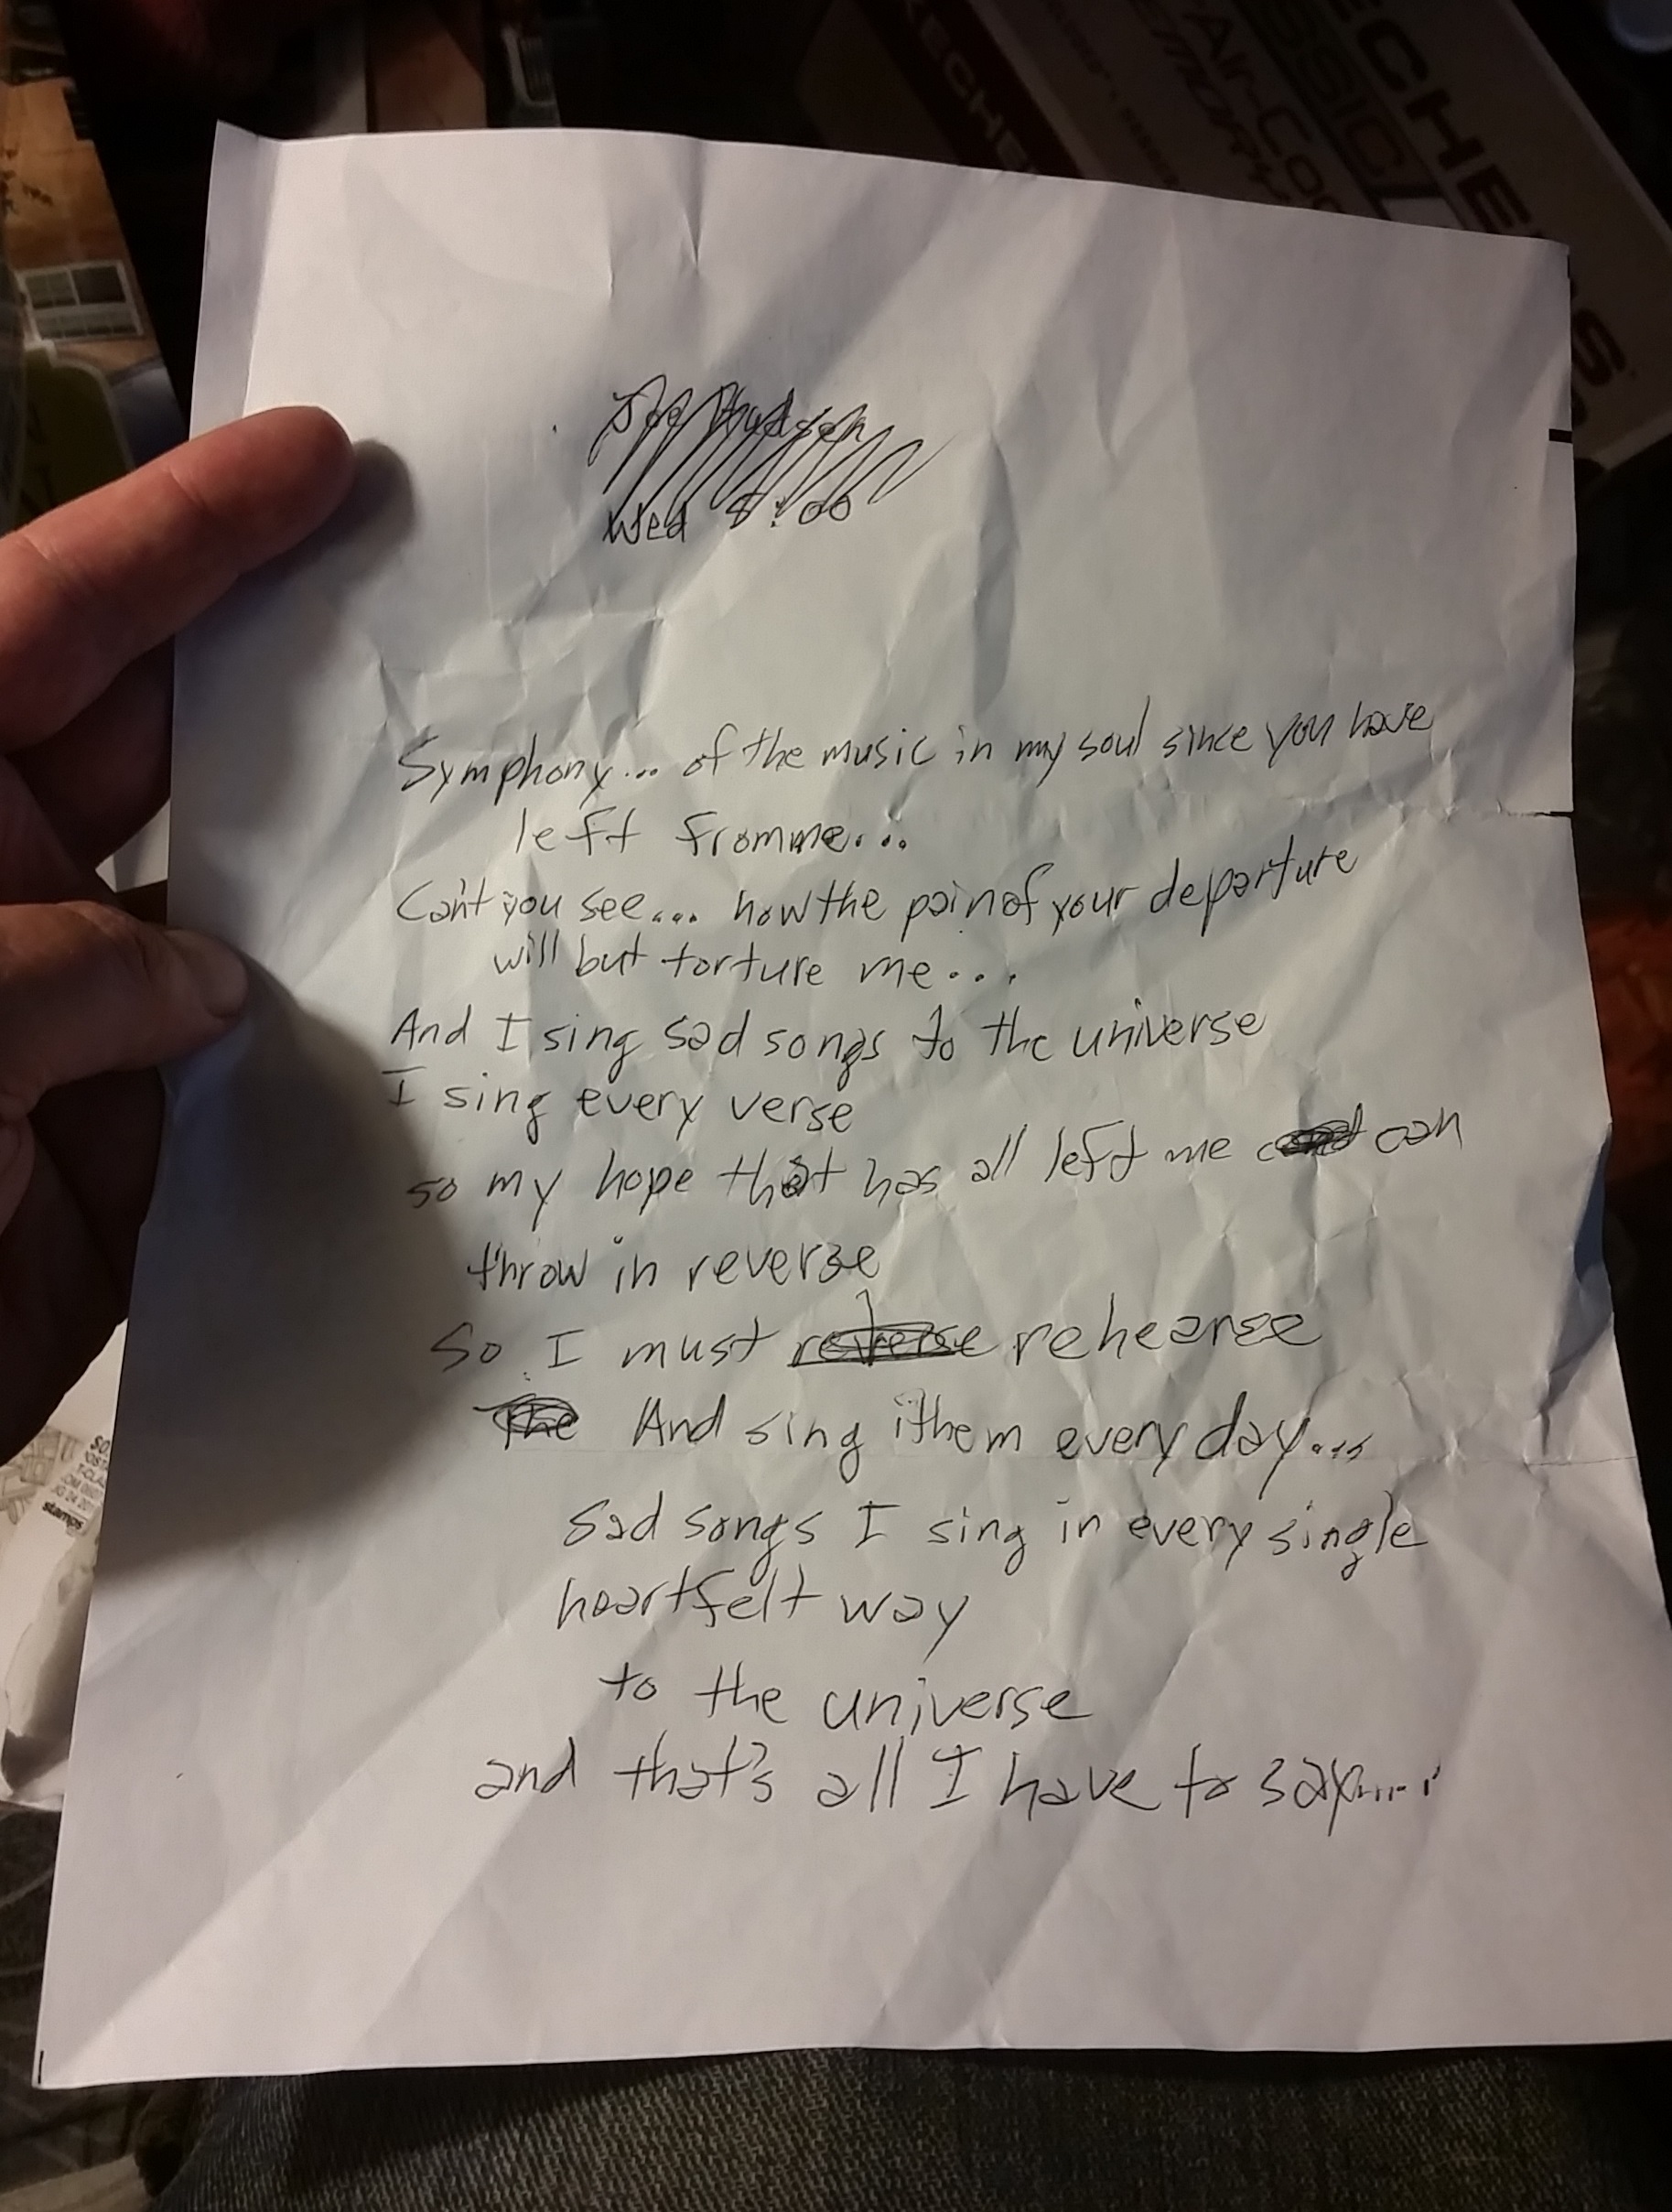 ECHE
SSIC
Air-Coo
Joe Hudson
Wed 8:00
Symphony... of the music in my soul since you have
left from me...
Can't you see... how the pain of your departure
will but torture me...
And I sing sad songs to the universe
I sing every verse
so my hope that has all left me can
throw in reverse
So I must reverse rehearse
The And sing them every day...
Sad songs I sing in every single
heartfelt way
to the universe
and that's all I have to say.....
stamps